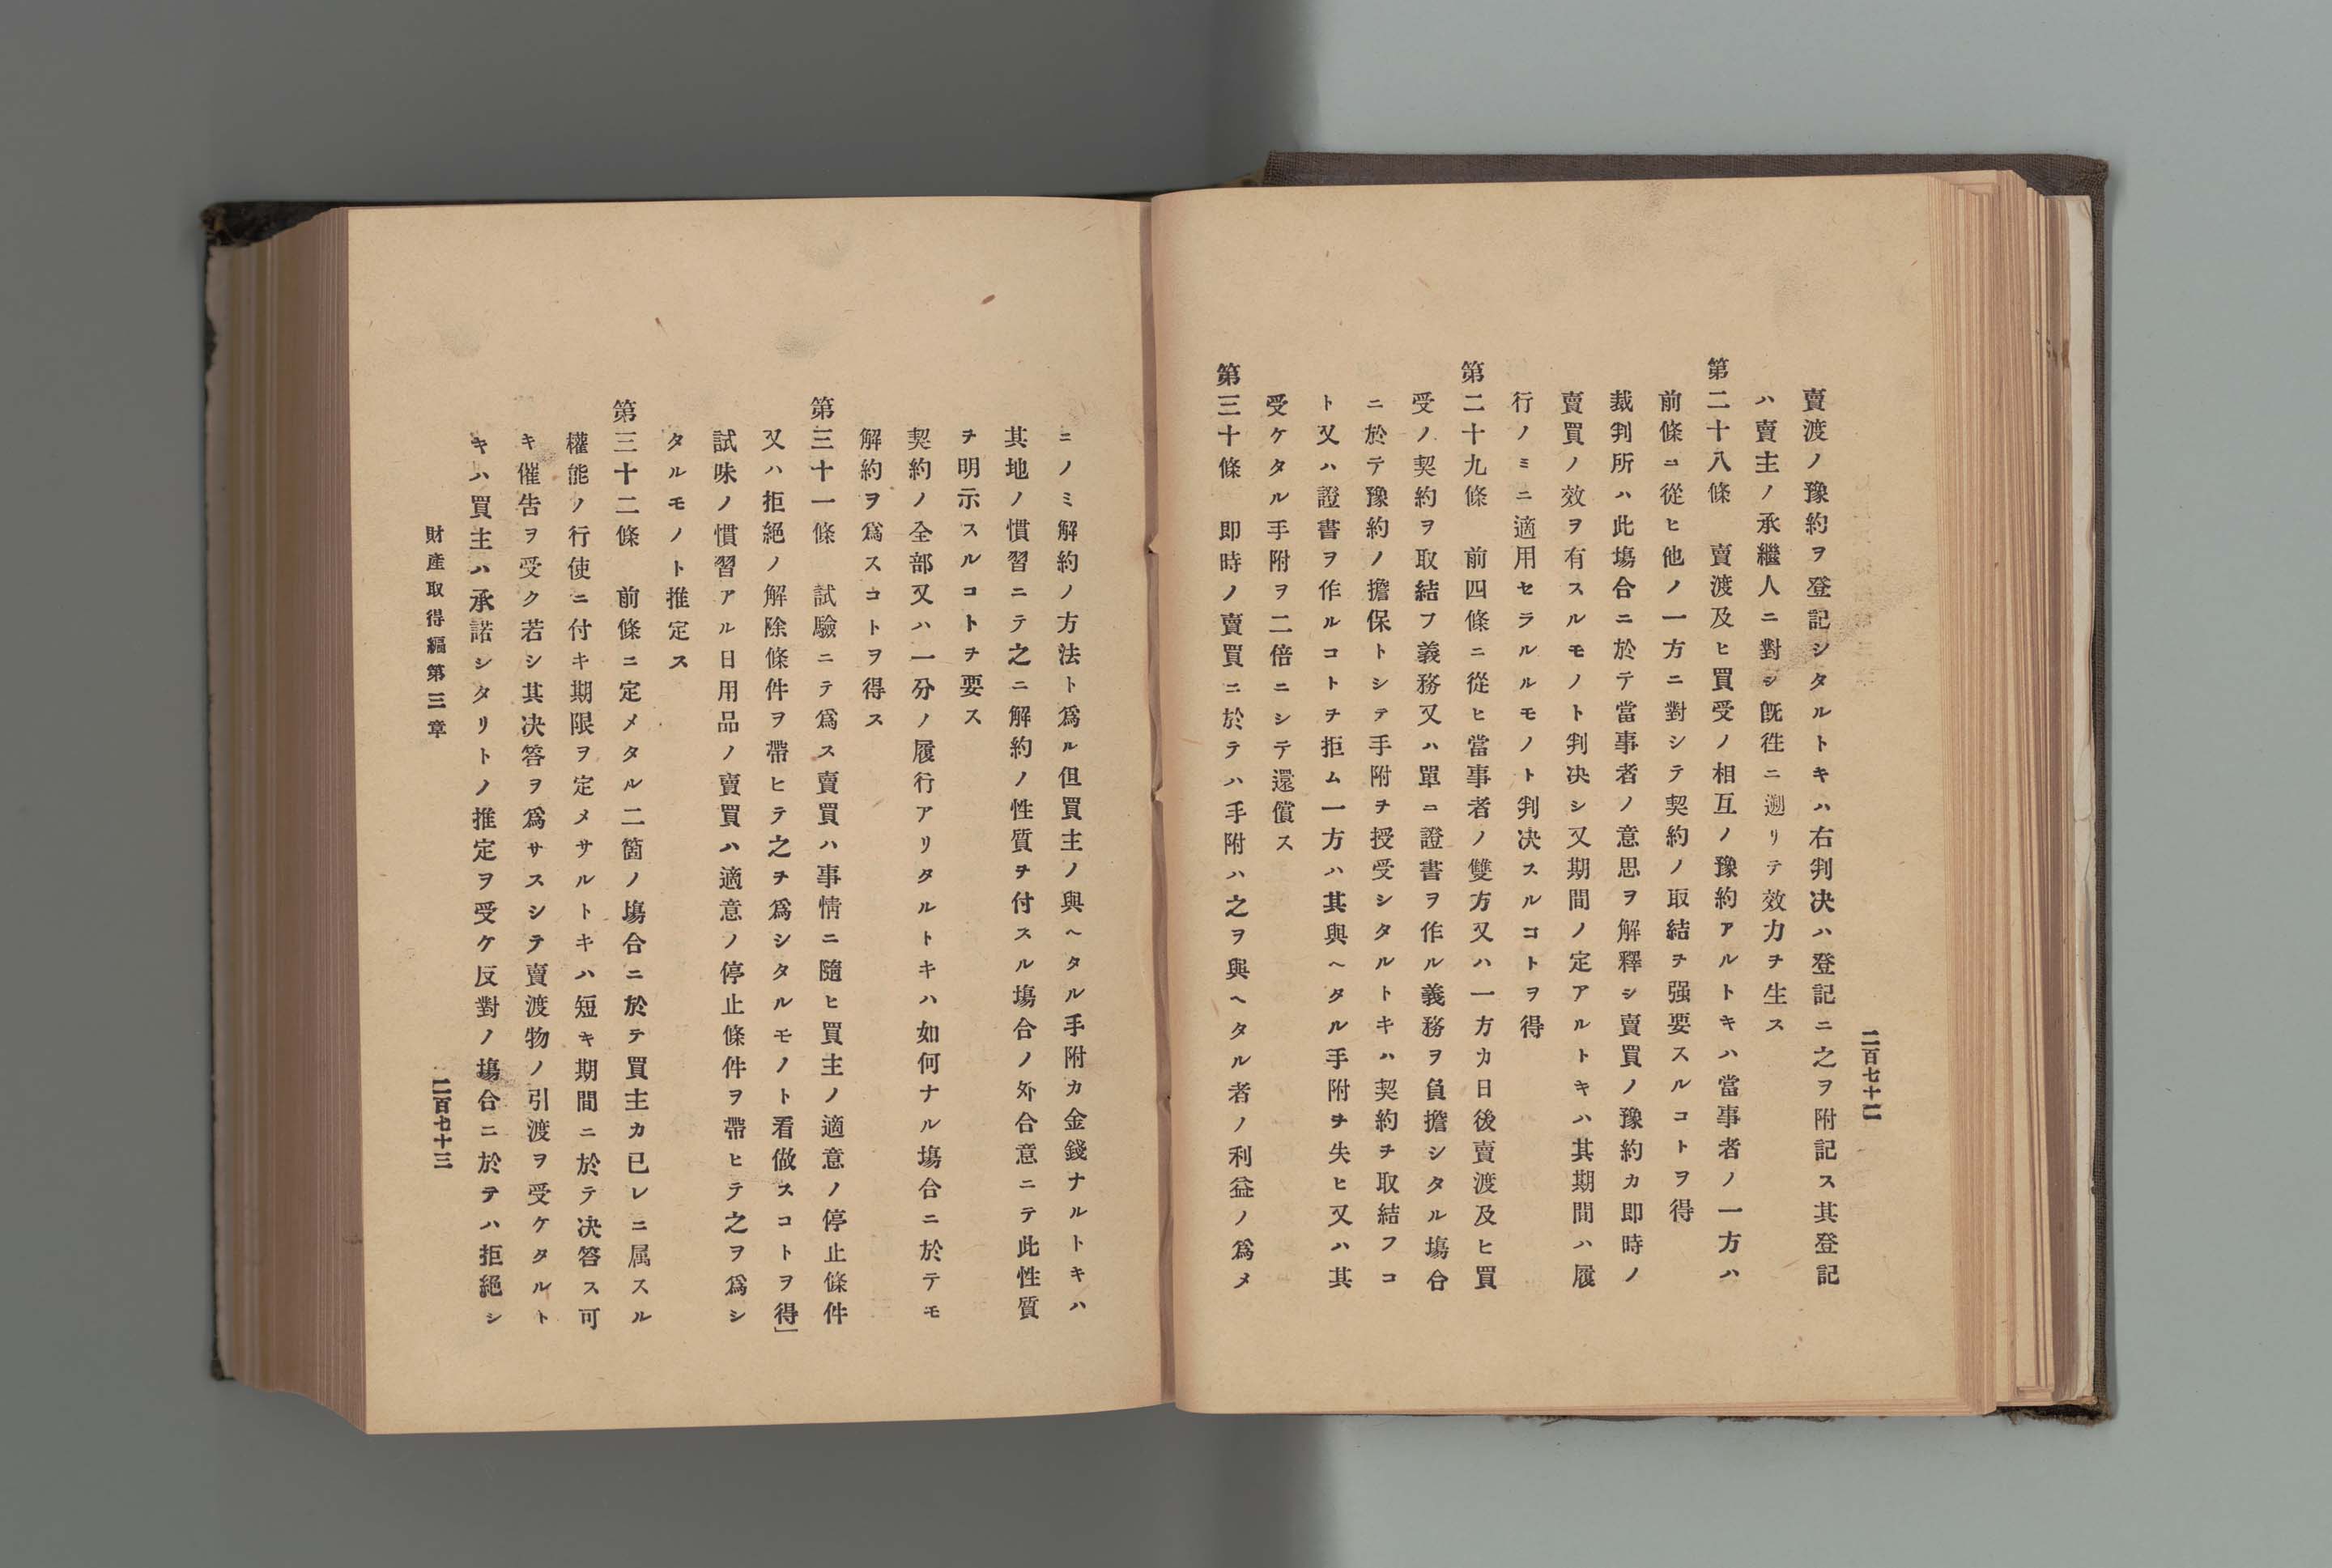 二百七十二
賣渡ノ豫約ヲ登記シタルトキハ右判决ハ登記ニ之ヲ附記ス其登記
ハ賣主ノ承繼人ニ對シ旣徃ニ遡リテ效力ヲ生ス
第二十八條　賣渡及ヒ買受ノ相互ノ豫約アルトキハ當事者ノ一方ハ
前條ニ從ヒ他ノ一方ニ對シテ契約ノ取結ヲ强要スルコトヲ得
裁判所ハ此塲合ニ於テ當事者ノ意思ヲ解釋シ賣買ノ豫約カ即時ノ
賣買ノ效ヲ有スルモノト判决シ又期間ノ定アルトキハ其期間ハ履
行ノミニ適用セラルルモノト判决スルコトヲ得
第二十九條　前四條ニ從ヒ當事者ノ雙方又ハ一方カ日後賣渡及ヒ買
受ノ契約ヲ取結フ義務又ハ單ニ證書ヲ作ル義務ヲ負擔シタル塲合
ニ於テ豫約ノ擔保トシテ手附ヲ授受シタルトキハ契約ヲ取結フコ
ト又ハ證書ヲ作ルコトヲ拒ム一方ハ其與ヘタル手附ヲ失ヒ又ハ其
受ケタル手附ヲ二倍ニシテ還償ス
第三十條　即時ノ賣買ニ於テハ手附ハ之ヲ與ヘタル者ノ利益ノ爲メ
ニノミ解約ノ方法ト爲ル但買主ノ與ヘタル手附カ金錢ナルトキハ
其地ノ慣習ニテ之ニ解約ノ性質ヲ付スル塲合ノ外合意ニテ此性質
ヲ明示スルコトヲ要ス
契約ノ全部又ハ一分ノ履行アリタルトキハ如何ナル塲合ニ於テモ
解約ヲ爲スコトヲ得ス
第三十一條　試驗ニテ爲ス賣買ハ事情ニ隨ヒ買主ノ適意ノ停止條件
又ハ拒絶ノ解除條件ヲ帶ヒテ之ヲ爲シタルモノト看做スコトヲ得」
試味ノ慣習アル日用品ノ賣買ハ適意ノ停止條件ヲ帶ヒテ之ヲ爲シ
タルモノト推定ス
第三十二條　前條ニ定メタル二箇ノ塲合ニ於テ買主カ已レニ属スル
權能ノ行使ニ付キ期限ヲ定メサルトキハ短キ期間ニ於テ决答ス可
キ催告ヲ受ク若シ其决答ヲ爲サスシテ賣渡物ノ引渡ヲ受ケタルト
キハ買主ハ承諾シタリトノ推定ヲ受ケ反對ノ塲合ニ於テハ拒絶シ
財產取得編第三章
二百七十三